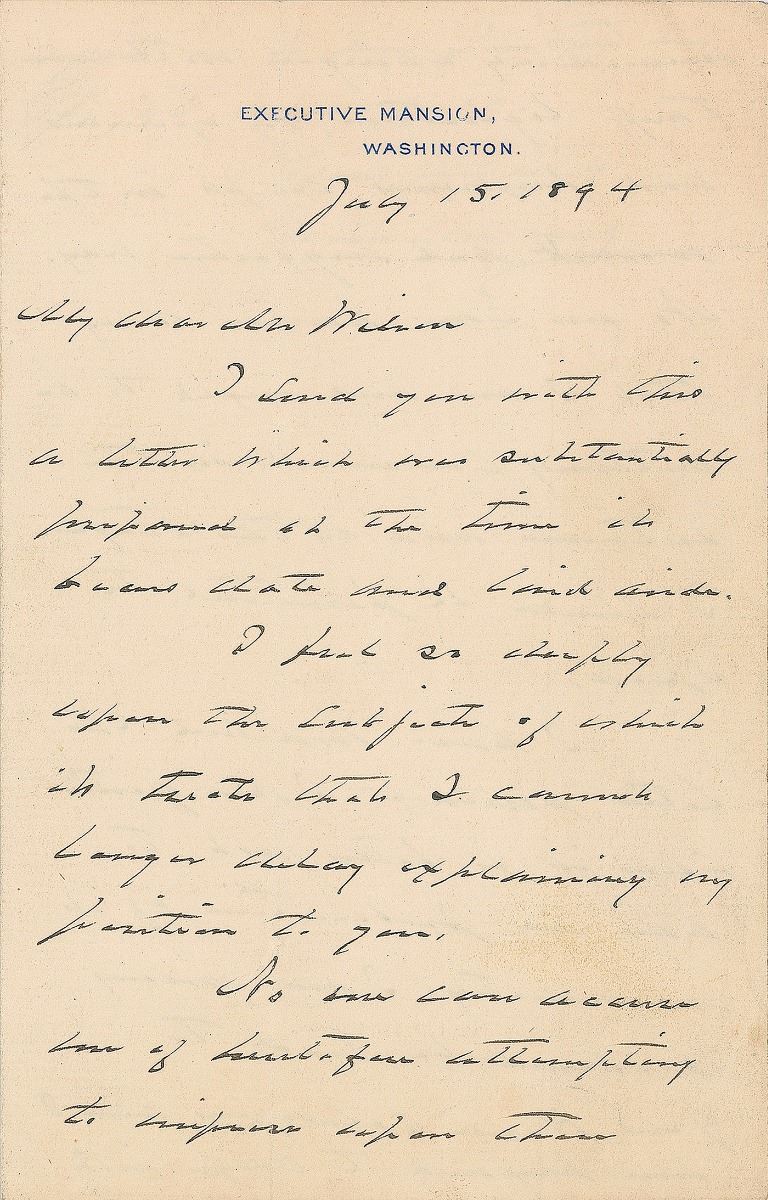 EXECUTIVE MANSION,
WASHINGTON.
July 15. 1894
My dear Mr Wilson
I send you with this
a letter which was substantially
prepared at the time it
bears date and laid aside.
I feel so deeply
upon the subject of which
it treats that I cannot
longer delay explaining my
position to you.
No one can accuse
me of heretofore attempting
to impress upon those